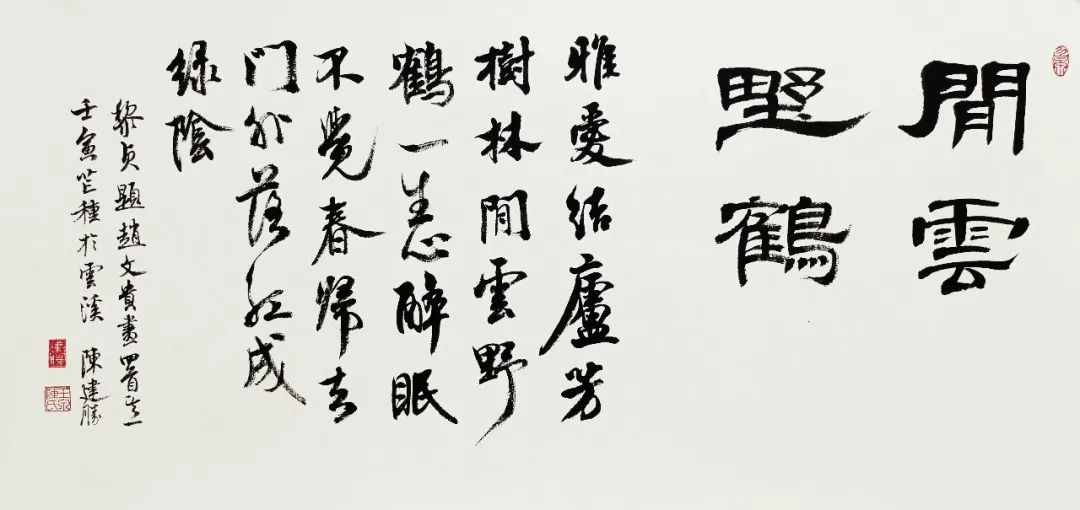 閒雲
野鶴
雅愛結廬芳
樹林閒雲野
鶴一生心醉眠
不覺春歸去
門外落紅成
綠陰
黎貞題趙文貴畫四首之一
壬寅芒種於雲溪 陳建勝